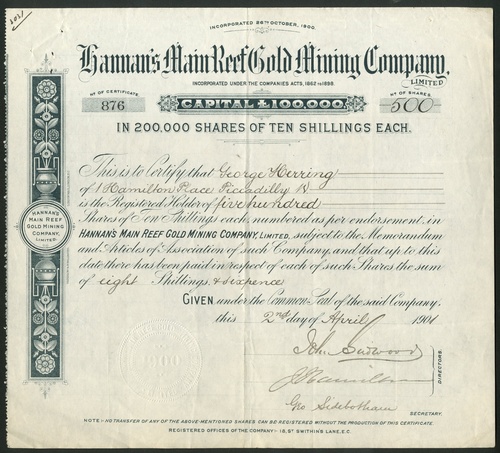 1021
INCORPORATED 26TH OCTOBER, 1900.
Hannan's Main Reef Gold Mining Company,
LIMITED
INCORPORATED UNDER THE COMPANIES ACTS, 1862 TO 1898.
NO OF CERTIFICATE
876
CAPITAL £100,000,
NO OF SHARES
500
IN 200,000 SHARES OF TEN SHILLINGS EACH.
This is to Certify that George Herring
of 1 Hamilton Place Piccadilly W
is the Registered Holder of five hundred
Shares of Ten Shillings each, numbered as per endorsement, in
HANNAN'S MAIN REEF GOLD MINING COMPANY, LIMITED, subject to the Memorandum
and Articles of Association of such Company, and that up to this
date there has been paid in respect of each of such Shares the sum
of eight Shillings & sixpence
GIVEN under the Common Seal of the said Company,
this 2nd day of April 1901
HANNAN'S
MAIN REEF
GOLD MINING
COMPANY,
LIMITED.
DIRECTORS.
Geo Sidebotham
SECRETARY.
NOTE:- NO TRANSFER OF ANY OF THE ABOVE-MENTIONED SHARES CAN BE REGISTERED WITHOUT THE PRODUCTION OF THIS CERTIFICATE.
REGISTERED OFFICES OF THE COMPANY:- 18, ST SWITHIN'S LANE, E.C.